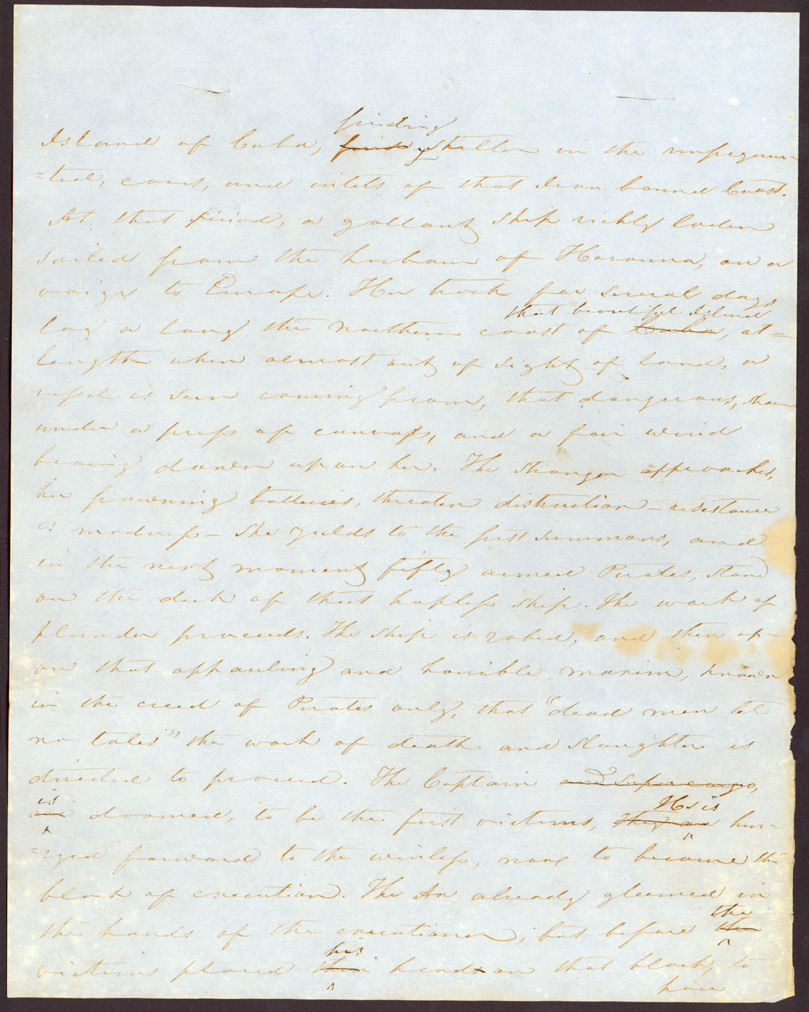 finding
Island of Cuba, find g shelter in the unfrequen-
=ted, coves, and inlets of that Iron bound Coast.
At that period, a gallant ship richly laden
sailed from the harbour of Havanna, on a
voige to Europe. Her track for several days
that beautiful Island
lay a long the northern coast of Cuba, at=
length when almost out of sight of land, a
vessel is seen coming from, that dangerous, shore
under a press of canvass, and a fair wind
bearing down upon her. The stranger approaches,
her frowning batteries, threaten distruction – resistance
is madness – She yields to the first summons, and
in the next moment fifty armed Pirates, stand
on the deck of that hapless ship. The work of
plunder proceeds. The ship is robed, and then up-
on that appauling and horrible maxim, known
in the creed of Pirates only, that "dead men tel
no tales" the work of death and slaughter is
directed to proceed. The Captain and supercargo,
is He is
are doomed, to be the first victims, they are hur-
=ried forward to the winless, now to become the
block of execution. The Ax already gleemed in
the
the hands of the executioner, but before their
his
victims placed their heads on that block, to
have